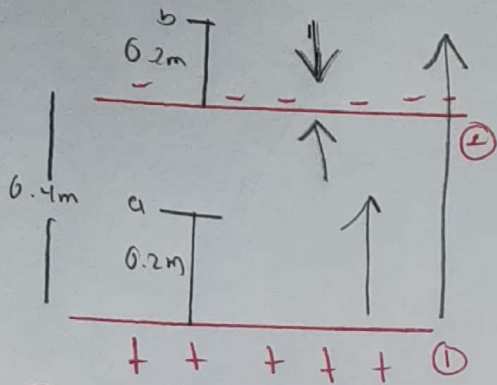 b
0.2m
- - - - - -
②
0.4m
a
0.2m
+ + + + + ①